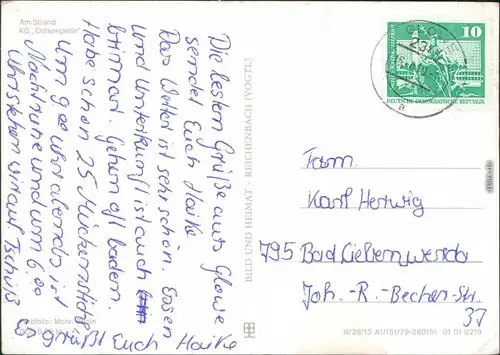 Am Strand
KG „Ostseeperle"
Die besten Grüße aus Glowe
sendet Euch Haike
Das Wetter ist sehr schön. Essen
und Unterkunft ist auch
prima. Gehen oft baden.
Habe schon 25 Mückenstiche
Um 9 00 Uhr abends ist
Nachtruhe und um 6.00
Uhr stehen wir auf Tschüß
Es grüßt Euch Haike
BILD UND HEIMAT · REICHENBACH (VOGTL)
GLOWE
10
DEUTSCHE DEMOKRATISCHE REPUBLIK
Fam.
Karl Hertwig
795 Bad Liebenwerda
Joh.-R.-Becher-Str.
37
III/26/13 A1/151/79-280151 01 01 0219